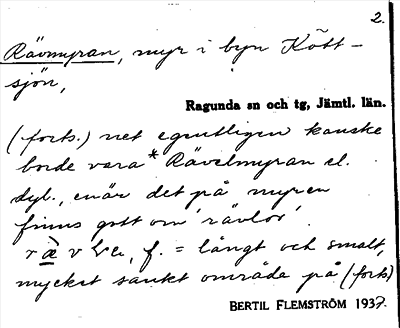 2.
Rävmyran, myr i byn Kött-
sjön,
Ragunda sn och tg, Jämtl. län.
(forts.) net egentligen kanske
borde vara *Rävelmyran el.
dyl., enär det på myren
finns gott om 'rävlor'.
f. = långt och smalt,
mycket sankt område på (forts)
BERTIL FLEMSTRÖM 1937.